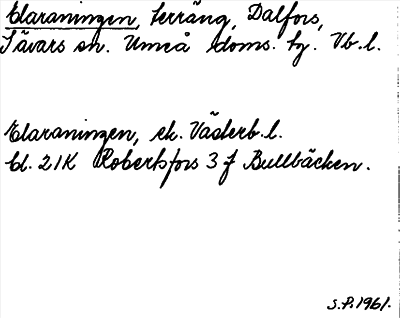 Claraningen, terräng, Dalfors,
Sävars sn. Umeå doms. hg. Vb. l.
Claraningen, ek. Västerb. l.
bl. 21K Robertsfors 3 f Bullbäcken.
S.P. 1961.